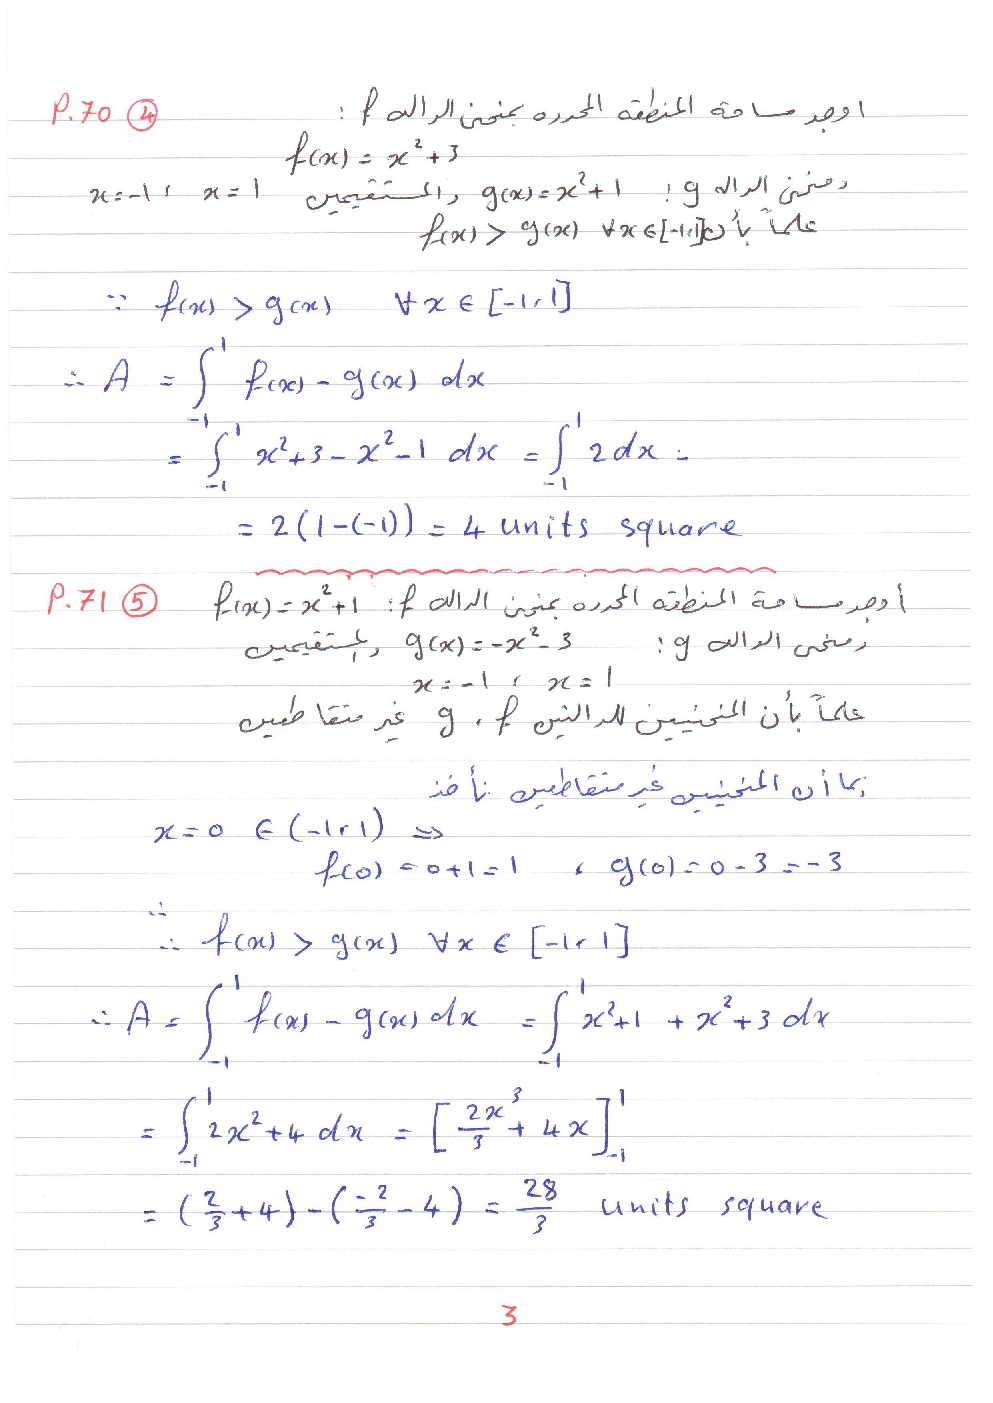 P.70 ④ اوجد مساحة المنطقه المحدده بمنحنى الداله f :
f(x) = x² + 3
ومنحنى الداله g : g(x) = x² + 1 والمستقيمين x = -1 ، x = 1
علماً بأن f(x) > g(x) ∀x ∈ [-1،1]
∵ f(x) > g(x) ∀x ∈ [-1،1]
∴ A = ∫₋₁¹ f(x) - g(x) dx
= ∫₋₁¹ x² + 3 - x² - 1 dx = ∫₋₁¹ 2 dx =
= 2(1-(-1)) = 4 units square
P.71 ⑤ أوجد مساحة المنطقه المحدده بمنحنى الداله f : f(x) = x² + 1
ومنحنى الداله g : g(x) = -x² - 3 والمستقيمين
x = -1 ، x = 1
علماً بأن المنحنيين للدالتين f ، g غير متقاطعين
بما أن المنحنيين غير متقاطعين نأخذ
x = 0 ∈ (-1،1) ⇒
f(0) = 0+1 = 1 ، g(0) = 0 - 3 = -3
∴
∴ f(x) > g(x) ∀x ∈ [-1،1]
∴ A = ∫₋₁¹ f(x) - g(x) dx = ∫₋₁¹ x² + 1 + x² + 3 dx
= ∫₋₁¹ 2x² + 4 dx = [2x³/3 + 4x]₋₁¹
= (2/3 + 4) - (-2/3 - 4) = 28/3 units square
3